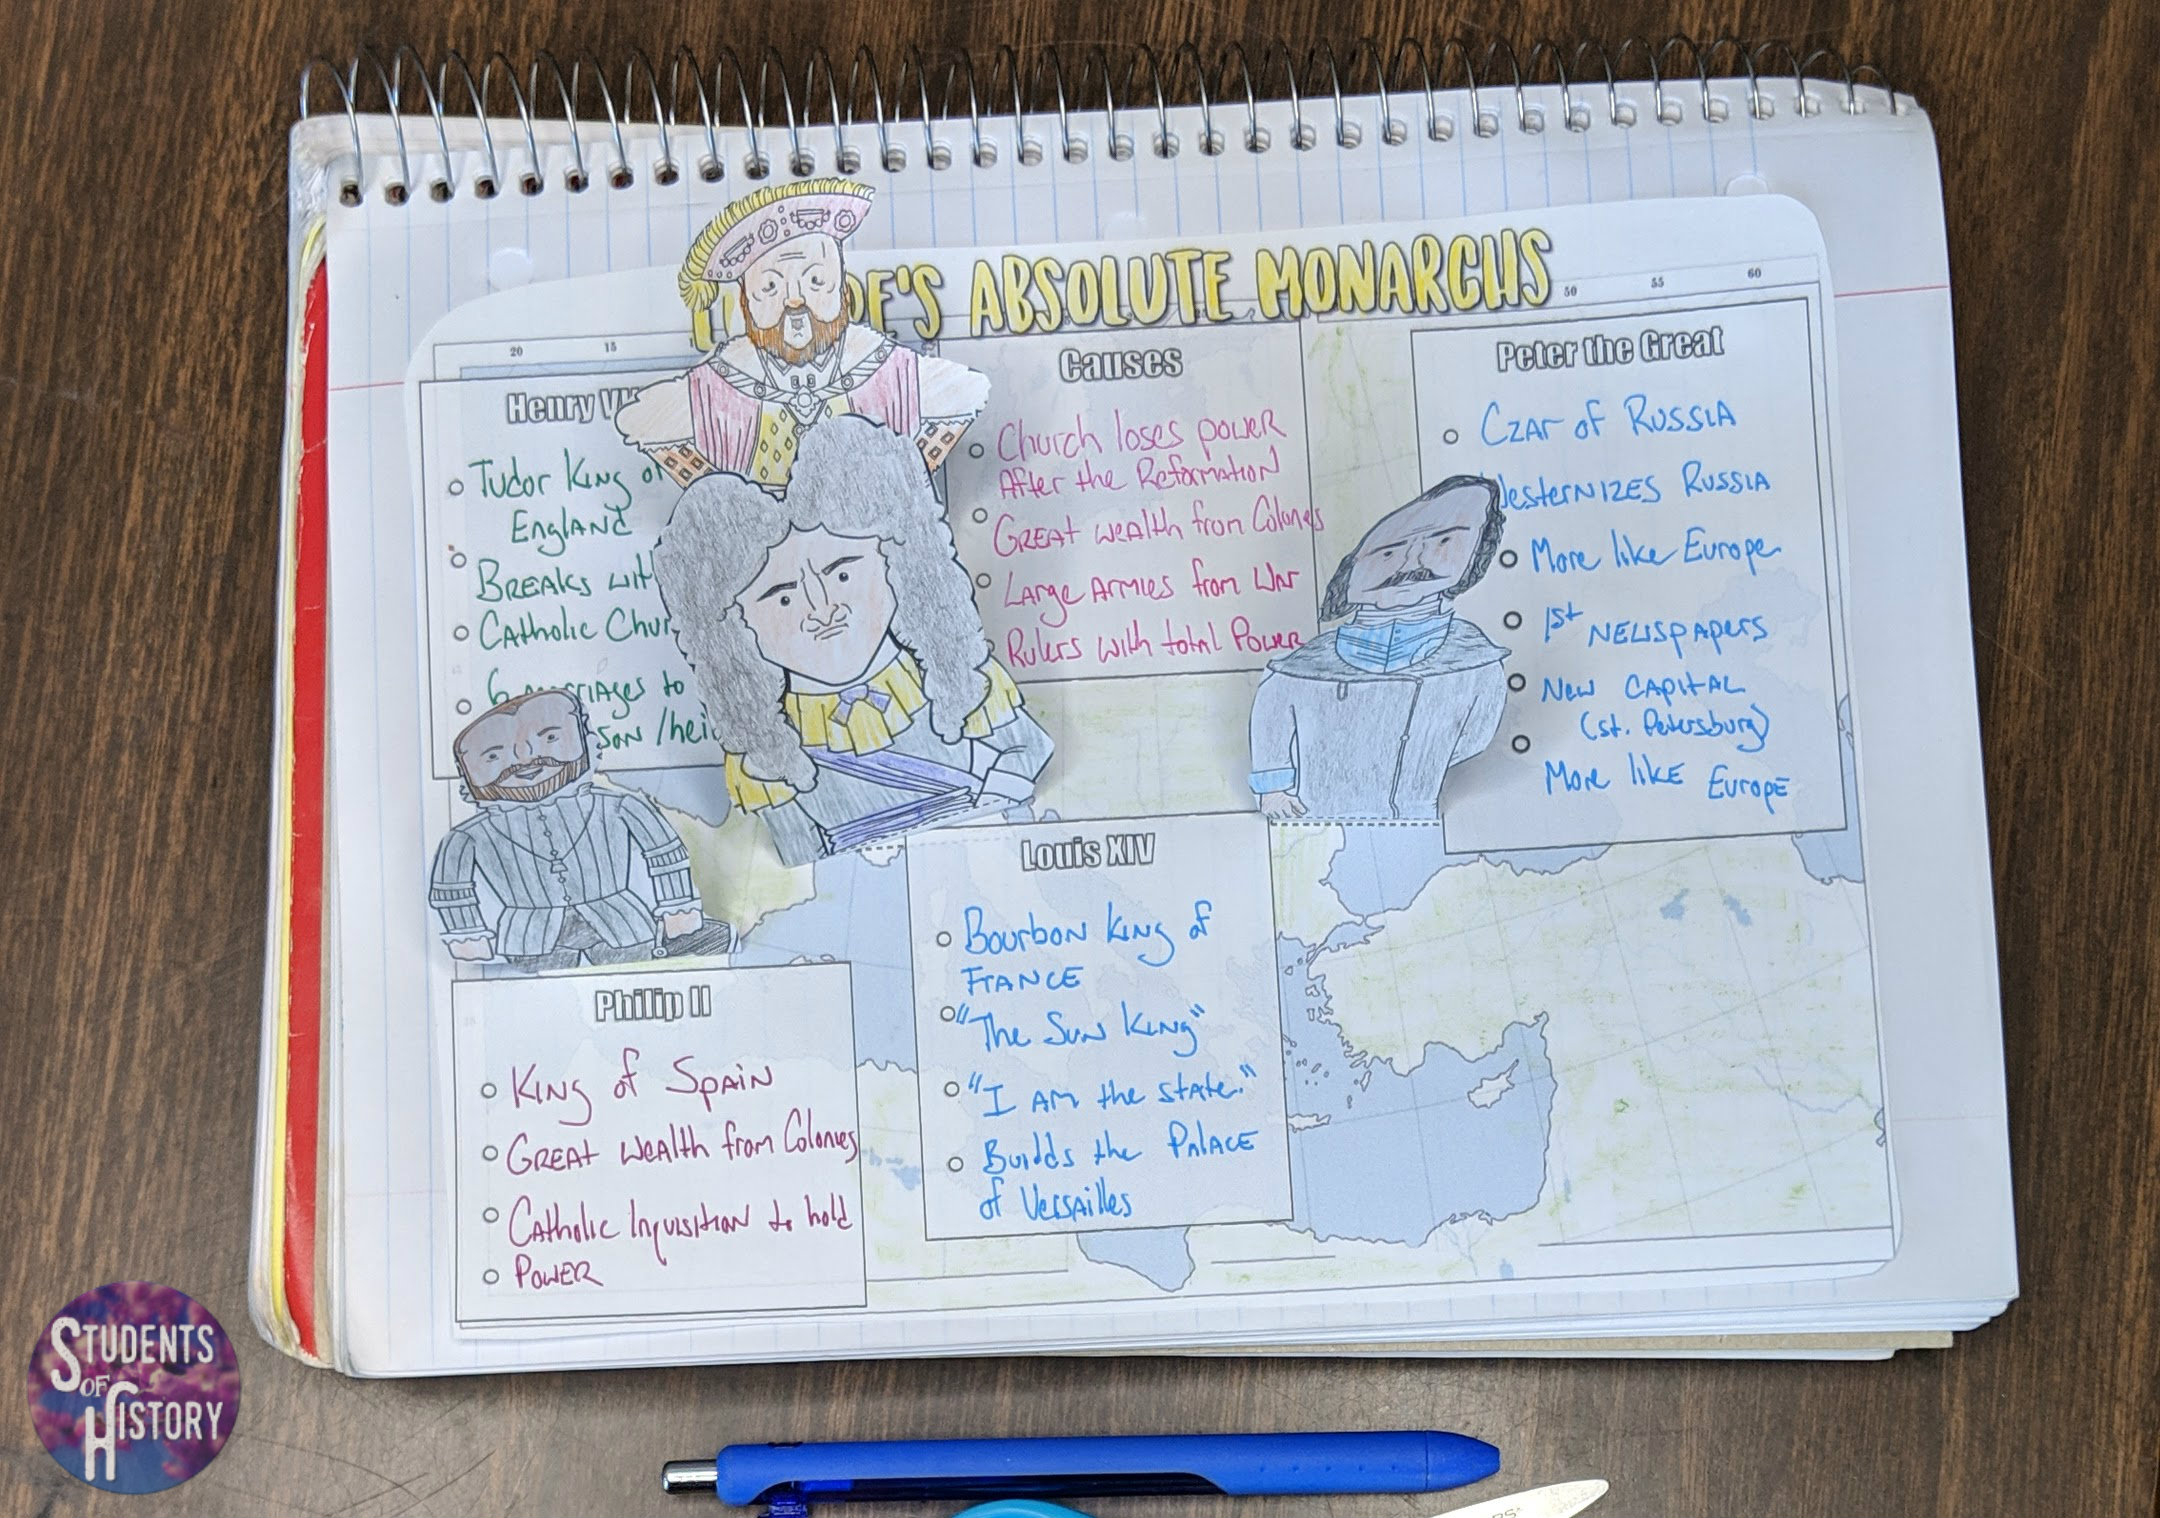 'S ABSOLUTE MONARCHS
20
15
50
55
60
Henry
Tudor King of
England
Breaks
Catholic
to
son /
Causes
Church loses power
After the Reformation
Great wealth from Colonies
Large Armies from War
Rulers with total Power
Peter the Great
Czar of Russia
Westernizes Russia
More like Europe
1st Newspapers
New Capital
(St. Petersburg)
More like Europe
Philip II
King of Spain
Great wealth from Colonies
Catholic Inquisition to hold
Power
Louis XIV
Bourbon King of
France
"The Sun King"
"I am the state."
Builds the Palace
of Versailles
STUDENTS
OF
HISTORY